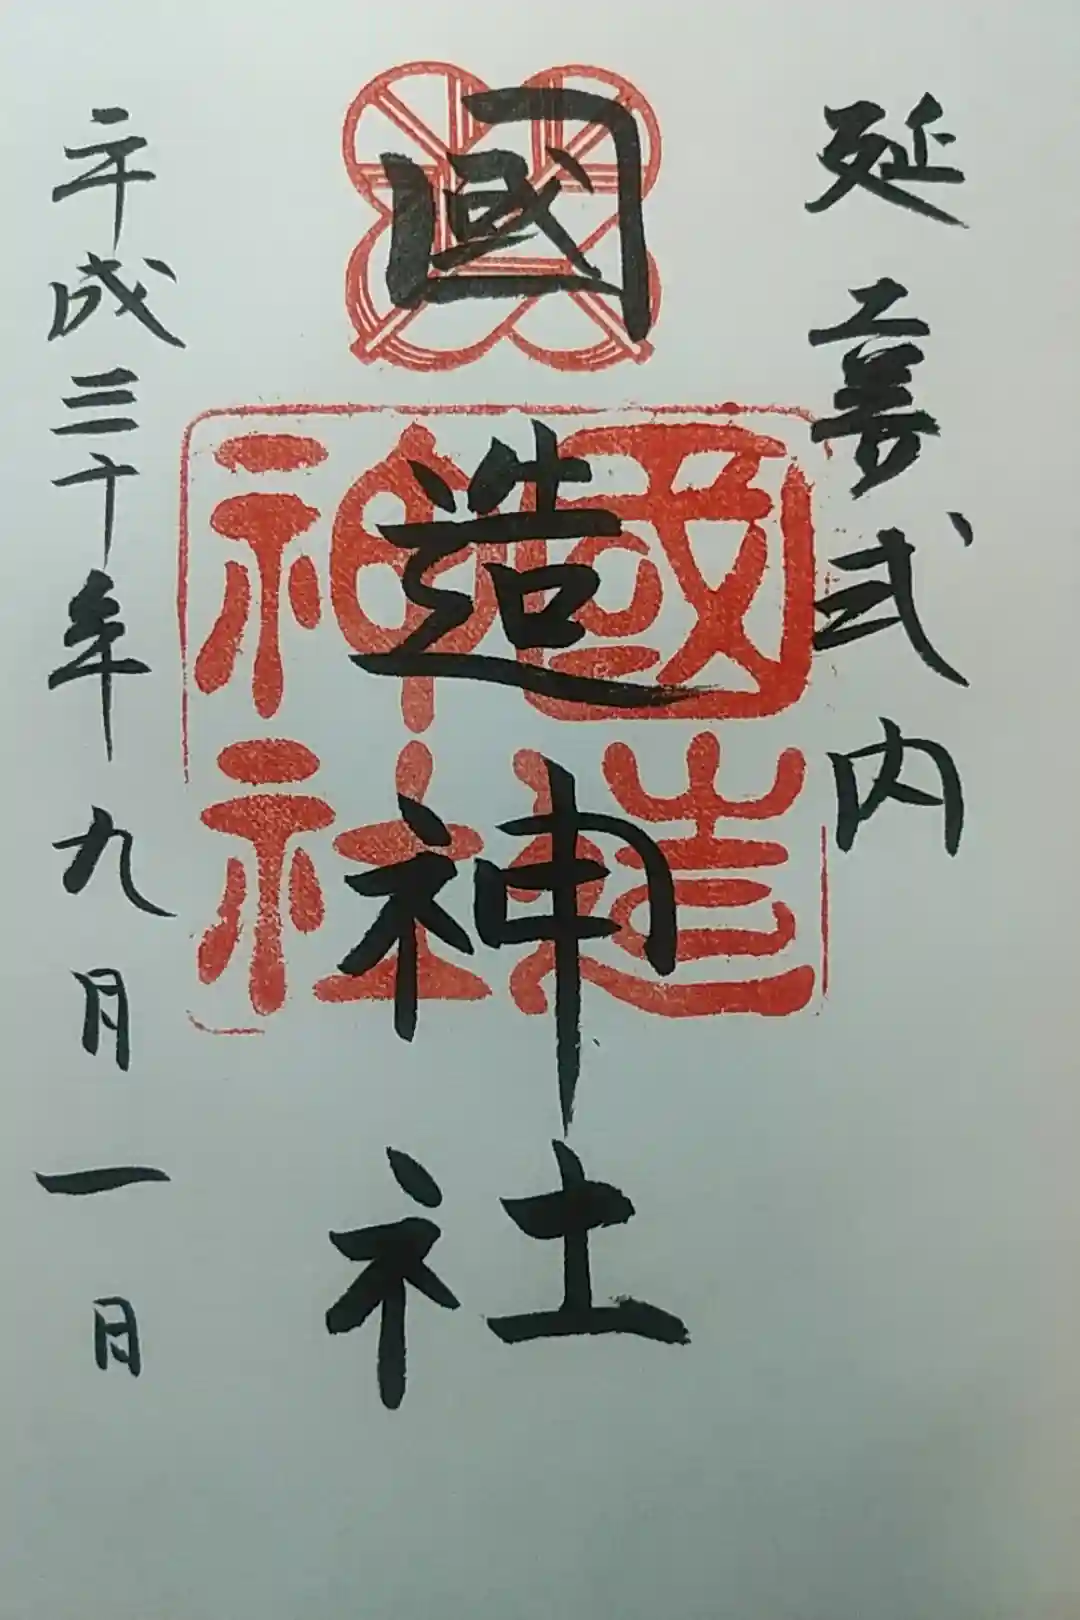 延喜式内
國造神社
國造
神社
平成三十年九月一日